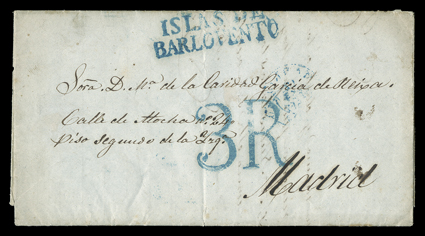 ISLAS DE
BARLOVENTO
Sora. D. Ma. de la Caridad Garcia de
Calle de Atocha no. 24
Piso segundo de la Izqa.
3R
Madrid